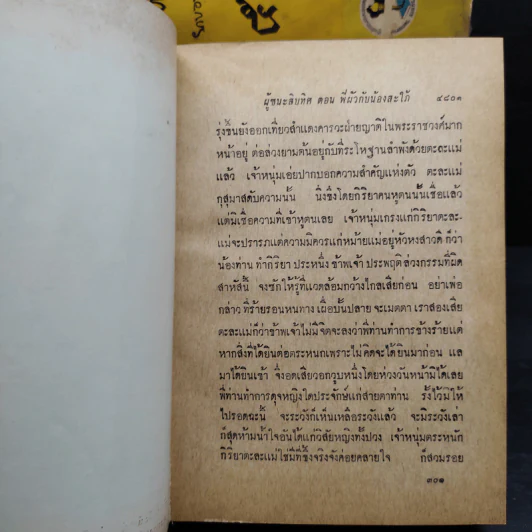 ผู้ชนะสิบทิศ ตอน พี่ผัวกับน้องสะใภ้ ๔๘๐๓
รุ่งขึ้นยังออกเที่ยวสำแดงคารวะฝ่ายญาติในพระราชวงศ์มาก
หน้าอยู่ ต่อล่วงยามต้นอยู่กับที่ระโหฐานลำพังด้วยตะละแม่
แล้ว เจ้าหนุ่มเอ่ยปากบอกความสำคัญแห่งตัว ตะละแม่
กุสุมาสดับความนั้น นิ่งขึงโดยกิริยาคนหูตนนั้นเชื่อแล้ว
แต่มิเชื่อความที่เข้าหูตนเลย เจ้าหนุ่มเกรงแก่กิริยาตะละ-
แม่จะปรารภแต่ความมิควรแก่หม้ายแม่อยู่หัวหงสาวดี ก็ว่า
น้องท่าน ทำกิริยา ประหนึ่ง ข้าพเจ้า ประพฤติ ล่วงกรรมที่ผิด
สาหัสนี้ จงซักให้รู้ที่แวดล้อมกว้างไกลเสียก่อน อย่าเพ่อ
กล่าว ที่ร้ายรอนหนทาง เผื่อบั้นปลาย จะเมตตา เราสองเสีย
ตะละแม่ก็ว่าข้าพเจ้าไม่มีจิตจะลงว่าพี่ท่านทำการข้างร้ายแต่
หากสิ่งที่ได้ยินต่อตระหนกเพราะไม่คิดจะได้ยินมาก่อน แล
มาได้ยินเข้า จึงอดเสียวอกวูบหนึ่งโดยห่วงวันหน้ามิได้เลย
พี่ท่านทำการดุจหญิงใดประจักษ์แก่สายตาท่าน รั้งไว้มิให้
ไปรอดฉะนี้ จะระวังก็เห็นเหลือระวังแล้ว จะมิระวังเล่า
ก็สุดห้ามน้ำใจอันได้แก่วิสัยหญิงทั้งปวง เจ้าหนุ่มตระหนัก
กิริยาตะละแม่ใช่มีที่ขึ้งจริงจังค่อยคลายใจ ก็สวมรอย
๓๐๑